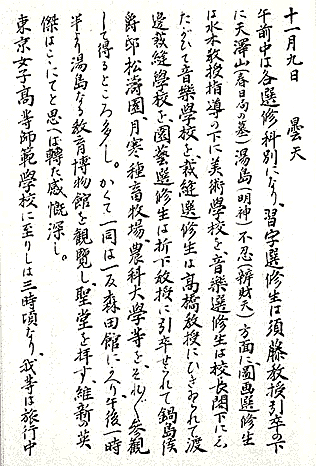 十一月九日　　曇天
午前中は各選修科別になり、習字選修生は須藤教授引卒の下
に天澤山(春日局の墓)湯島(明神)不忍(辨財天)方面に圖画選修生
は水木教授指導の下に美術學校を、音樂選修生は校長閣下に
したがいて音樂學校を、裁縫選修生は高橋教授にひきゐられて渡
邊裁縫學校を、園藝選修生は折下教授に引卒せられて鍋島侯
爵邸松濤園、月寒種畜牧場、農科大學等をそれぞれ参観
して得るところ多し。かくて一同は一反森田館にかへり午後一時
半より湯島なる教育博物館を観覧し、聖堂を拝す、維新の英
傑はこゝにてと思へば轉た感慨深し。
東京女子髙等師範學校に至りしは三時頃なり、我等は旅行中